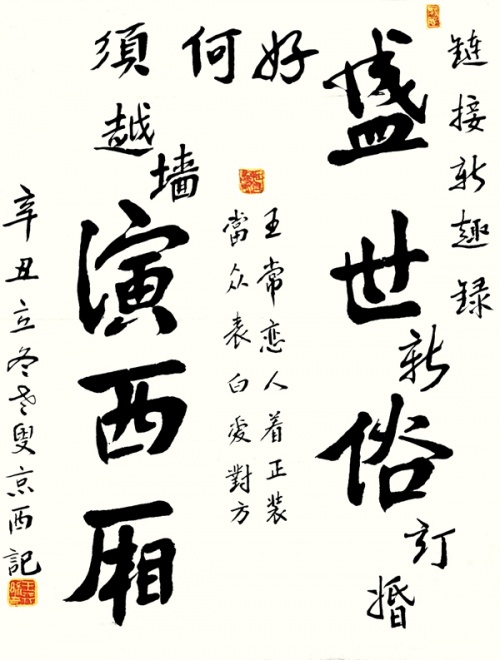 鏈接新趣録
盛世新俗訂婚好
何須越墙演西厢
王常恋人着正装
當众表白爱對方
辛丑立冬老叟京西記